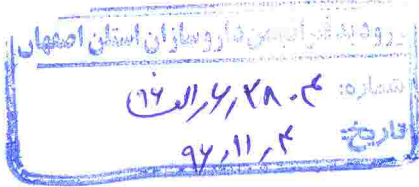 ورود به دفتر انجمن داروسازان استان اصفهان
شماره:
تاریخ: ۹۶٫۱۱٫۴